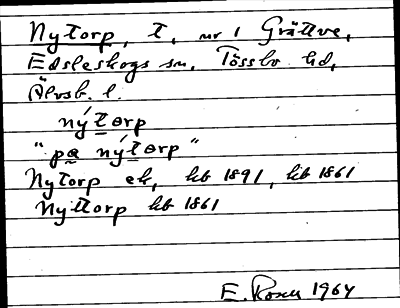 Nytorp, t, nr 1 Grättve,
Edsleskogs sn, Tössbo hd,
Älvsb. l.
nýtorp
"på nýtorp"
Nytorp ek, kb 1891, kb 1861
Nyttorp kb 1861
E. Rosell 1964